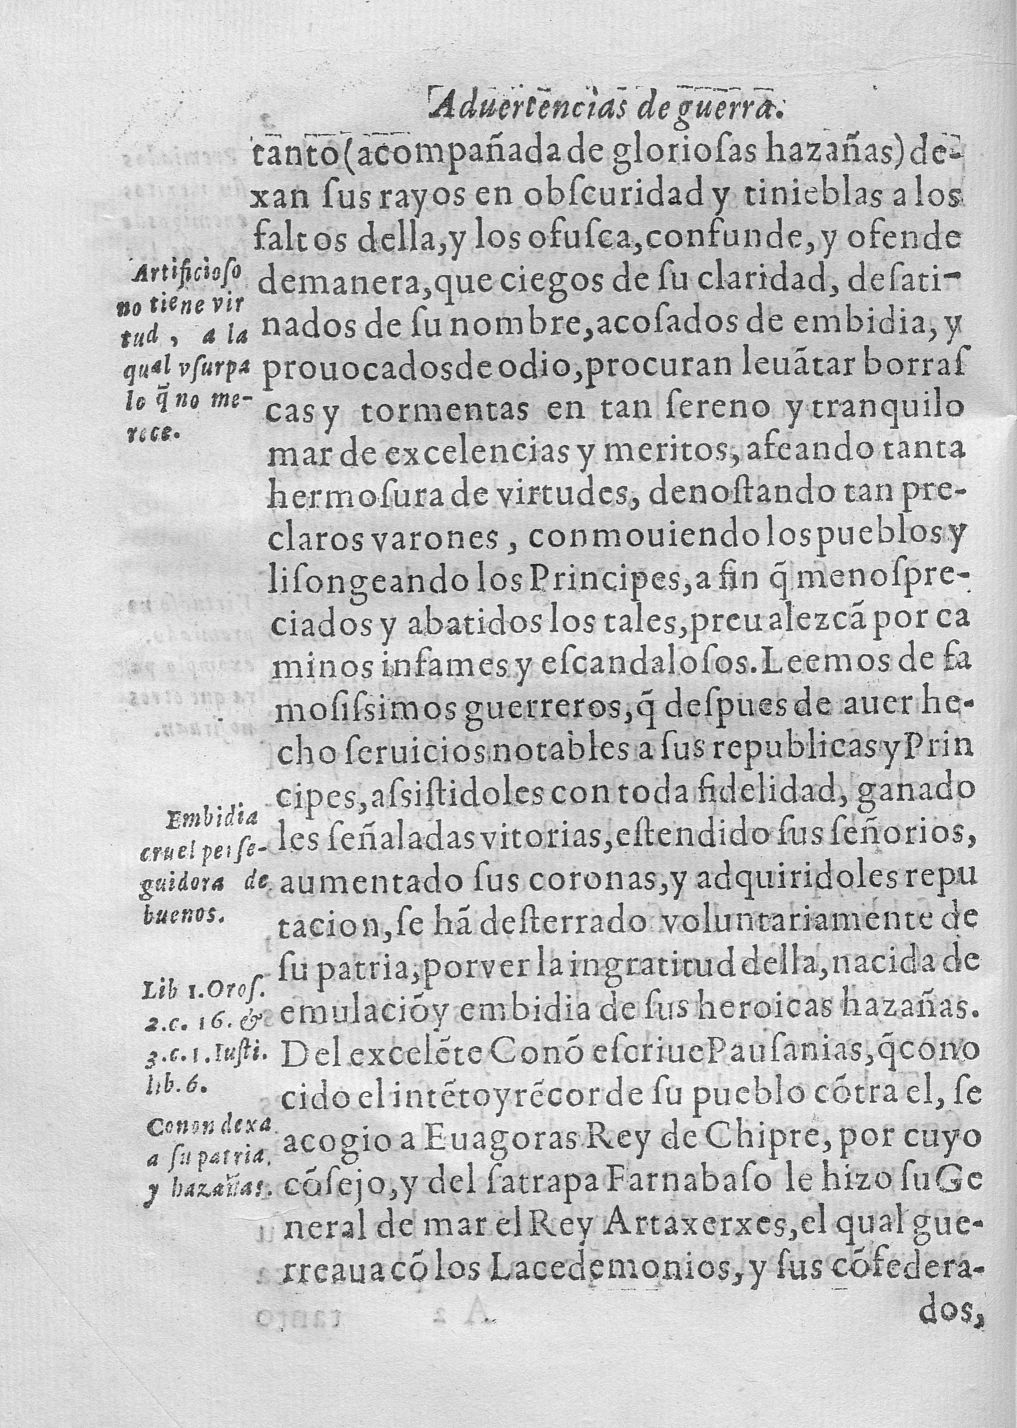 Aduertencias de guerra.
tanto (acompañada de glorioſas hazañas) de-
xan ſus rayos en obſcuridad y tinieblas a los
faltos della, y los ofuſca, confunde, y ofende
demanera, que ciegos de ſu claridad, deſati-
nados de ſu nombre, acoſados de embidia, y
prouocados de odio, procuran leuãtar borraſ
cas y tormentas en tan ſereno y tranquilo
mar de excelencias y meritos, afeando tanta
hermoſura de virtudes, denoſtando tan pre-
claros varones, conmouiendo los pueblos y
liſongeando los Principes, a fin q̃ menoſpre-
ciados y abatidos los tales, preualezcã por ca
minos infames y eſcandaloſos. Leemos de fa
moſiſsimos guerreros, q̃ deſpues de auer he-
cho ſeruicios notables a ſus republicas y Prin
cipes, aſsiſtidoles con toda fidelidad, ganado
les ſeñaladas vitorias, eſtendido ſus ſeñorios,
aumentado ſus coronas, y adquiridoles repu
tacion, ſe hã deſterrado voluntariamente de
ſu patria, por ver la ingratitud della, nacida de
emulaciõ y embidia de ſus heroicas hazañas.
Del excelẽte Conõ eſcriue Pauſanias, q̃ cono
cido el intẽto y rẽcor de ſu pueblo cõtra el, ſe
acogio a Euagoras Rey de Chipre, por cuyo
cõſejo, y del ſatrapa Farnabaſo le hizo ſu Ge
neral de mar el Rey Artaxerxes, el qual gue-
rreaua cõ los Lacedemonios, y ſus cõfedera-
dos,
Artificioſo
no tiene vir
tud, a la
qual vſurpa
lo q̃ no me-
rece.
Embidia
cruel perſe-
guidora de
buenos.
Lib 1. Oroſ.
2. c. 16. &
3. c. 1. Iuſti.
lib. 6.
Conon dexa
a ſu patria,
y hazañas.